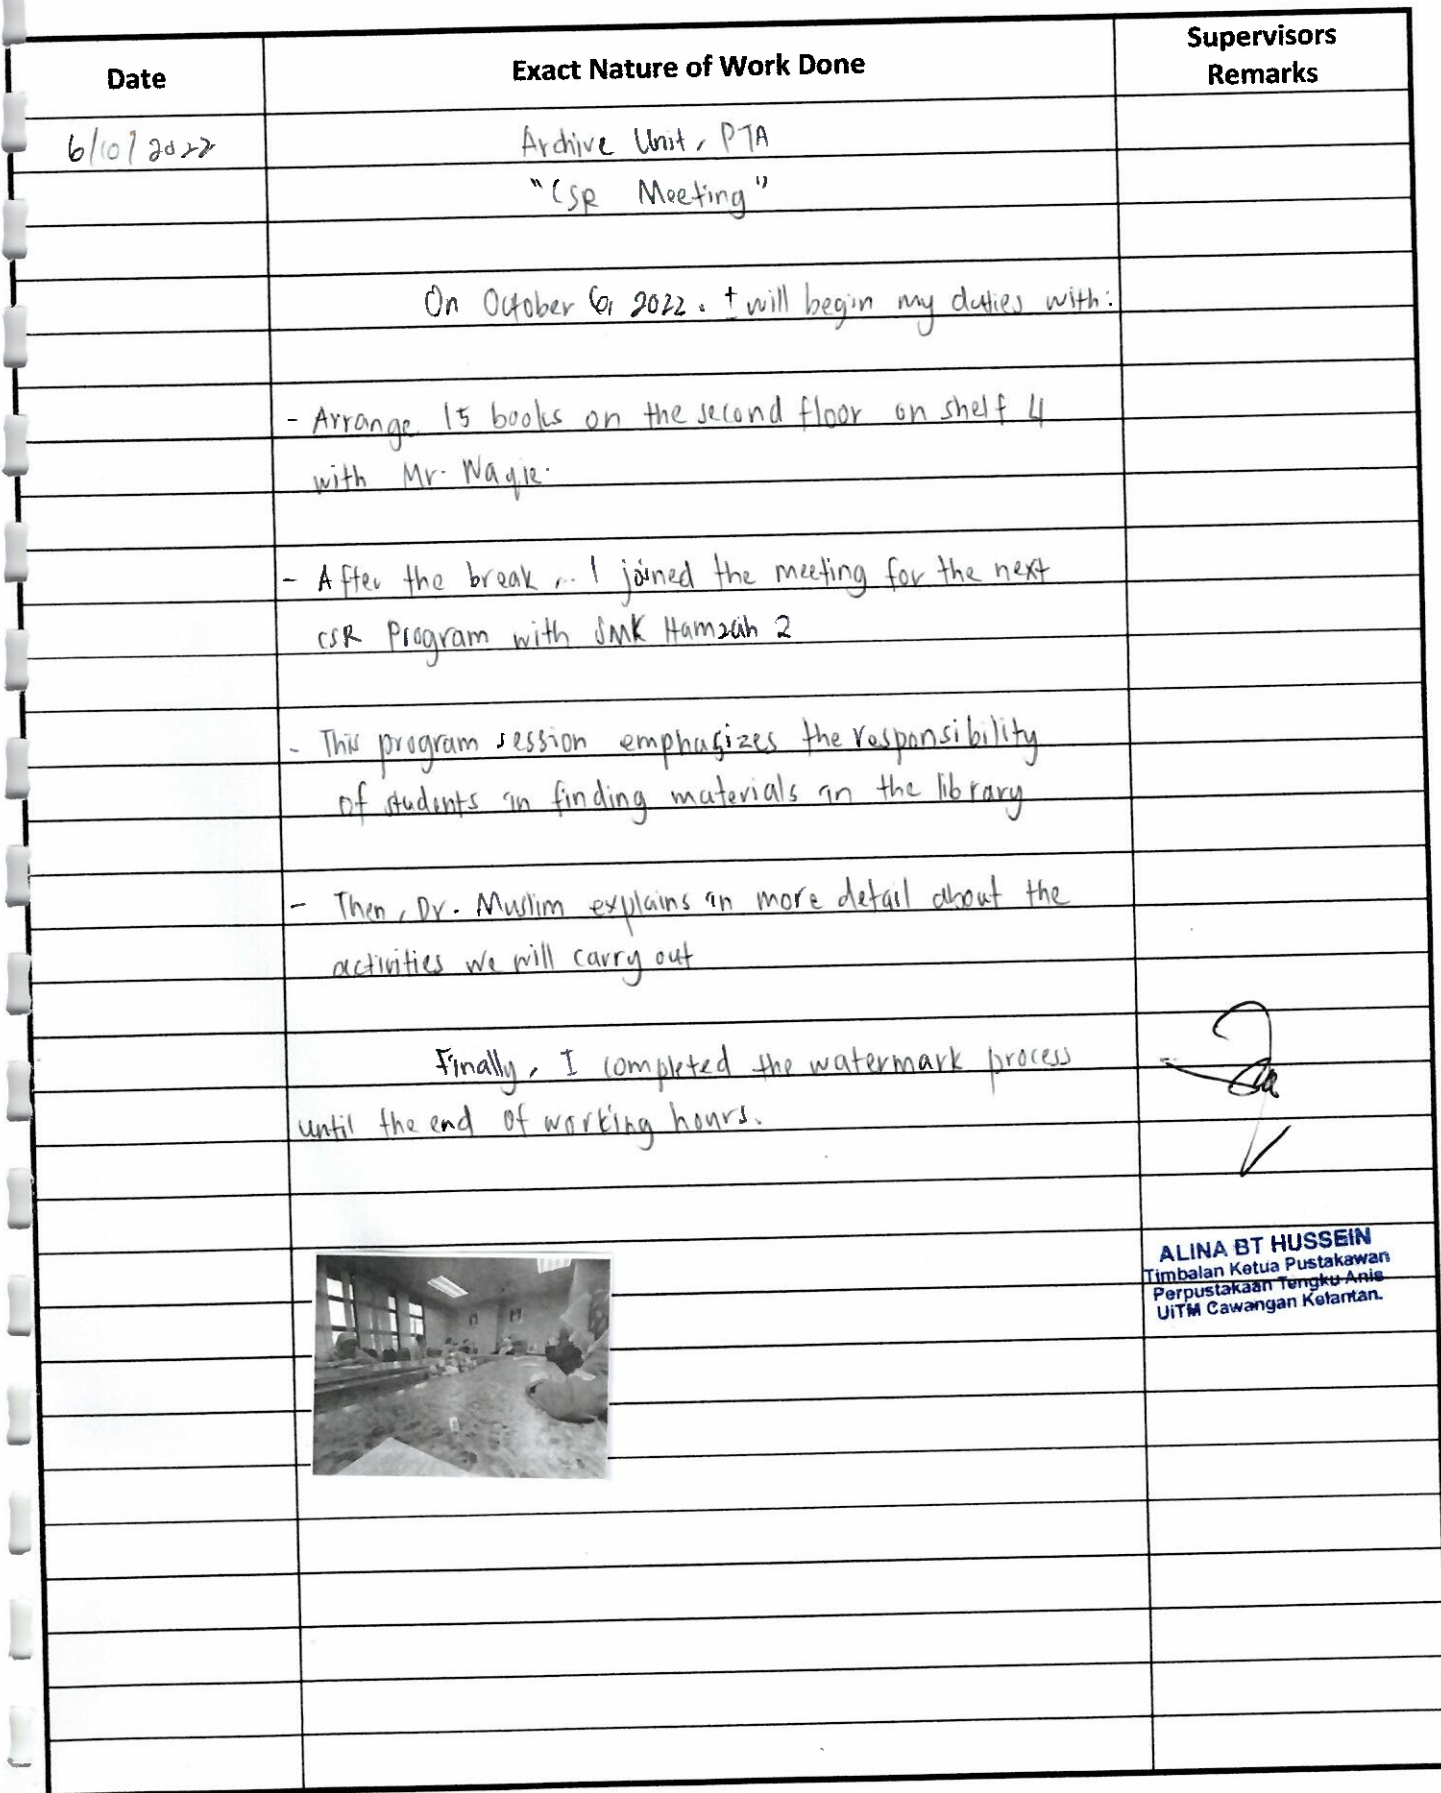 Date
Exact Nature of Work Done
Supervisors
Remarks
6/10/2022
Archive Unit, PTA
"CSR Meeting"
On October 6, 2022. I will begin my duties with:
- Arrange 15 books on the second floor on shelf 4
with Mr. Waqie.
- After the break, I joined the meeting for the next
CSR Program with SMK Hamzah 2
- This program session emphasizes the responsibility
of students in finding materials in the library
- Then, Dr. Muslim explains in more detail about the
activities we will carry out
Finally, I completed the watermark process
until the end of working hours.
ALINA BT HUSSEIN
Timbalan Ketua Pustakawan
Perpustakaan Tengku Anis
UiTM Cawangan Kelantan.